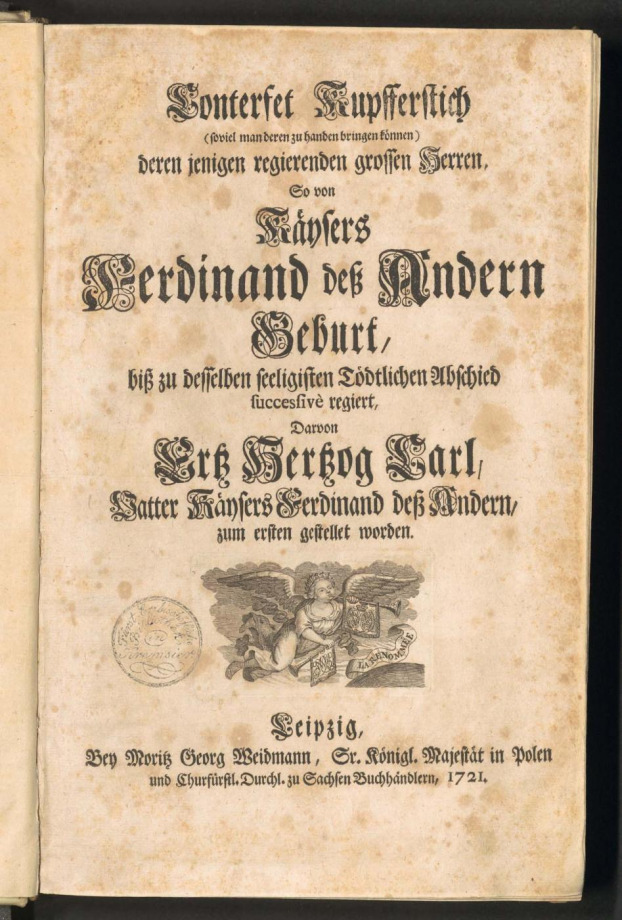 Conterfet Kupfferstich
(soviel man deren zu handen bringen können)
deren jenigen regierenden grossen Herren,
So von
Käysers
Ferdinand deß Andern
Geburt,
biß zu desselben seeligisten Tödtlichen Abschied
successivè regiert,
Darvon
Ertz Hertzog Carl,
Vatter Käysers Ferdinand deß Andern,
zum ersten gestellet worden.
LA RENOMMÉE
Leipzig,
Bey Moritz Georg Weidmann, Sr. Königl. Majestät in Polen
und Churfürstl. Durchl. zu Sachsen Buchhändlern, 1721.